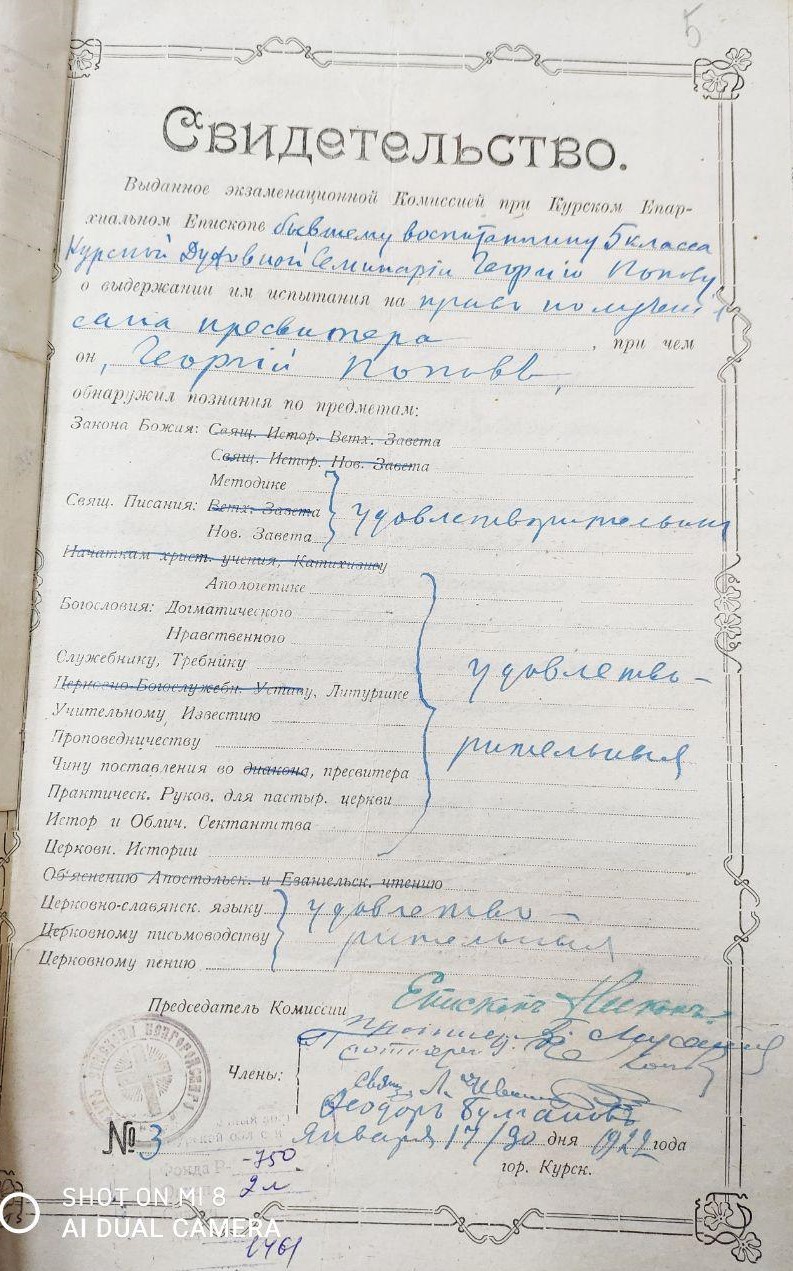 5
Свидетельство.
Выданное экзаменационной Комиссией при Курском Епар-
хиальном Епископе бывшему воспитаннику 5 класса
Курской Духовной Семинаріи Георгію Попову
о выдержании им испытания на право получения
сана пресвитера, при чем
он, Георгій Поповъ,
обнаружил познания по предметам:
Закона Божия: Свящ. Истор. Ветх. Завета
Свящ. Истор. Нов. Завета
Методике
Свящ. Писания: Ветх. Завета удовлетворительныя
Нов. Завета
Начаткам христ. учения, Катихизису
Апологетике
Богословия: Догматического
Нравственного
Служебнику, Требнику удовлетво-
Церковно-Богослужебн. Уставу, Литургике
Учительному Известию
Проповедничеству рительныя
Чину поставления во диакона, пресвитера
Практическ. Руков. для пастыр. церкви
Истор и Облич. Сектантства
Церковн. Истории
Об'яснению Апостольск. и Евангельск. чтению
Церковно-славянск. языку удовлетво-
Церковному письмоводству рительныя
Церковному пению
Председатель Комиссии Епископъ Никонъ.
Члены: свящ. Л.
Феодоръ Булгаковъ
№ 3 Января 17/30 дня 1922 года
Фонда Р- 750
гор. Курск.
2л
SHOT ON MI 8
AI DUAL CAMERA